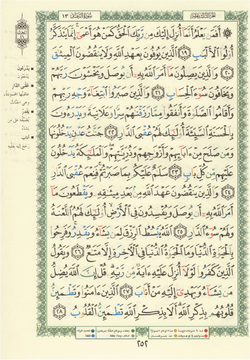 الجزء الثالث عشر سورة الرعد ١٣
۞ أَفَمَن يَعْلَمُ أَنَّمَا أُنزِلَ إِلَيْكَ مِن رَّبِّكَ الْحَقُّ كَمَنْ هُوَ أَعْمَىٰ إِنَّمَا يَتَذَكَّرُ
أُولُوا الْأَلْبَٰبِ ١٩ الَّذِينَ يُوفُونَ بِعَهْدِ اللَّهِ وَلَا يَنقُضُونَ الْمِيثَٰقَ
٢٠ وَالَّذِينَ يَصِلُونَ مَا أَمَرَ اللَّهُ بِهِ أَن يُوصَلَ وَيَخْشَوْنَ رَبَّهُمْ
وَيَخَافُونَ سُوءَ الْحِسَابِ ٢١ وَالَّذِينَ صَبَرُوا ابْتِغَاءَ وَجْهِ رَبِّهِمْ
وَأَقَامُوا الصَّلَوٰةَ وَأَنفَقُوا مِمَّا رَزَقْنَٰهُمْ سِرًّا وَعَلَانِيَةً وَيَدْرَءُونَ
بِالْحَسَنَةِ السَّيِّئَةَ أُولَٰئِكَ لَهُمْ عُقْبَى الدَّارِ ٢٢ جَنَّٰتُ عَدْنٍ يَدْخُلُونَهَا
وَمَن صَلَحَ مِنْ ءَابَائِهِمْ وَأَزْوَٰجِهِمْ وَذُرِّيَّٰتِهِمْ وَالْمَلَٰئِكَةُ يَدْخُلُونَ
عَلَيْهِم مِّن كُلِّ بَابٍ ٢٣ سَلَٰمٌ عَلَيْكُم بِمَا صَبَرْتُمْ فَنِعْمَ عُقْبَى الدَّارِ
٢٤ وَالَّذِينَ يَنقُضُونَ عَهْدَ اللَّهِ مِن بَعْدِ مِيثَٰقِهِ وَيَقْطَعُونَ مَا
أَمَرَ اللَّهُ بِهِ أَن يُوصَلَ وَيُفْسِدُونَ فِي الْأَرْضِ أُولَٰئِكَ لَهُمُ اللَّعْنَةُ
وَلَهُمْ سُوءُ الدَّارِ ٢٥ اللَّهُ يَبْسُطُ الرِّزْقَ لِمَن يَشَاءُ وَيَقْدِرُ وَفَرِحُوا
بِالْحَيَوٰةِ الدُّنْيَا وَمَا الْحَيَوٰةُ الدُّنْيَا فِي الْءَاخِرَةِ إِلَّا مَتَٰعٌ ٢٦ وَيَقُولُ
الَّذِينَ كَفَرُوا لَوْلَا أُنزِلَ عَلَيْهِ ءَايَةٌ مِّن رَّبِّهِ قُلْ إِنَّ اللَّهَ يُضِلُّ
مَن يَشَاءُ وَيَهْدِي إِلَيْهِ مَنْ أَنَابَ ٢٧ الَّذِينَ ءَامَنُوا وَتَطْمَئِنُّ
قُلُوبُهُم بِذِكْرِ اللَّهِ أَلَا بِذِكْرِ اللَّهِ تَطْمَئِنُّ الْقُلُوبُ ٢٨
٢٥٢